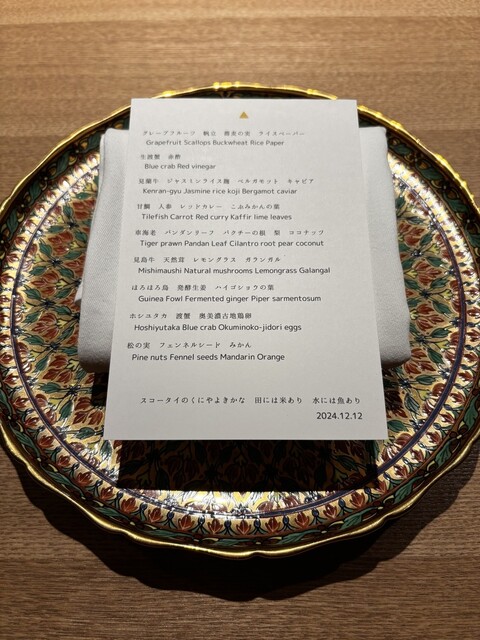 グレープフルーツ 帆立 蕎麦の実 ライスペーパー
Grapefruit Scallops Buckwheat Rice Paper
生渡蟹 赤酢
Blue crab Red vinegar
見蘭牛 ジャスミンライス麹 ベルガモット キャビア
Kenran-gyu Jasmine rice koji Bergamot caviar
甘鯛 人参 レッドカレー こぶみかんの葉
Tilefish Carrot Red curry Kaffir lime leaves
車海老 パンダンリーフ パクチーの根 梨 ココナッツ
Tiger prawn Pandan Leaf Cilantro root pear coconut
見島牛 天然茸 レモングラス ガランガル
Mishimaushi Natural mushrooms Lemongrass Galangal
ほろほろ鳥 発酵生姜 ハイゴショウの葉
Guinea Fowl Fermented ginger Piper sarmentosum
ホシユタカ 渡蟹 奥美濃古地鶏卵
Hoshiyutaka Blue crab Okuminoko-jidori eggs
松の実 フェンネルシード みかん
Pine nuts Fennel seeds Mandarin Orange
スコータイのくにやよきかな 田には米あり 水には魚あり
2024.12.12